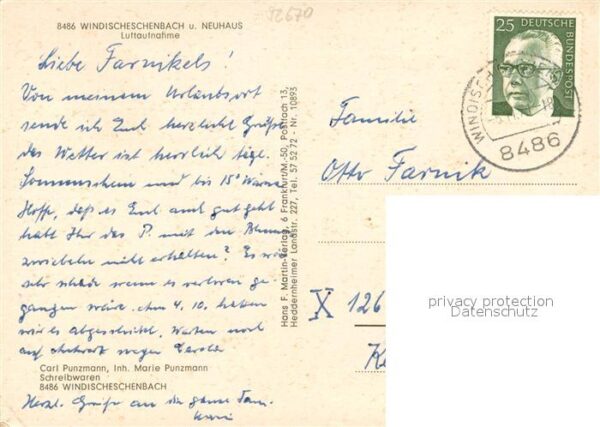 92670
8486 WINDISCHESCHENBACH u. NEUHAUS
Luftaufnahme
Liebe Farnikels!
Von meinem Urlaubsort
sende ich Euch herzliche Grüße
das Wetter ist herrlich tägl.
Sonnenschein und bis 15° Wärme
Hoffe, daß es Euch auch gut geht
habt Ihr das P. mit den Blumen
zwiebeln nicht erhalten? Es wäre
sehr schade wenn es verloren ge-
gangen wäre. Am 4. 10. haben
wir es abgeschickt. Warten noch
auf Antwort wegen
Carl Punzmann, Inh. Marie Punzmann
Schreibwaren
8486 WINDISCHESCHENBACH
Herzl. Grüße an die ganze Fam.
Hans F. Martin-Verlag, 6 Frankfurt/M.-50, Postfach 13,
Heddernheimer Landstr. 227, Tel. 57 52 72 - Nr. 10893
25 DEUTSCHE BUNDESPOST
8486
Familie
Otto Farnik
X 126
privacy protection
Datenschutz